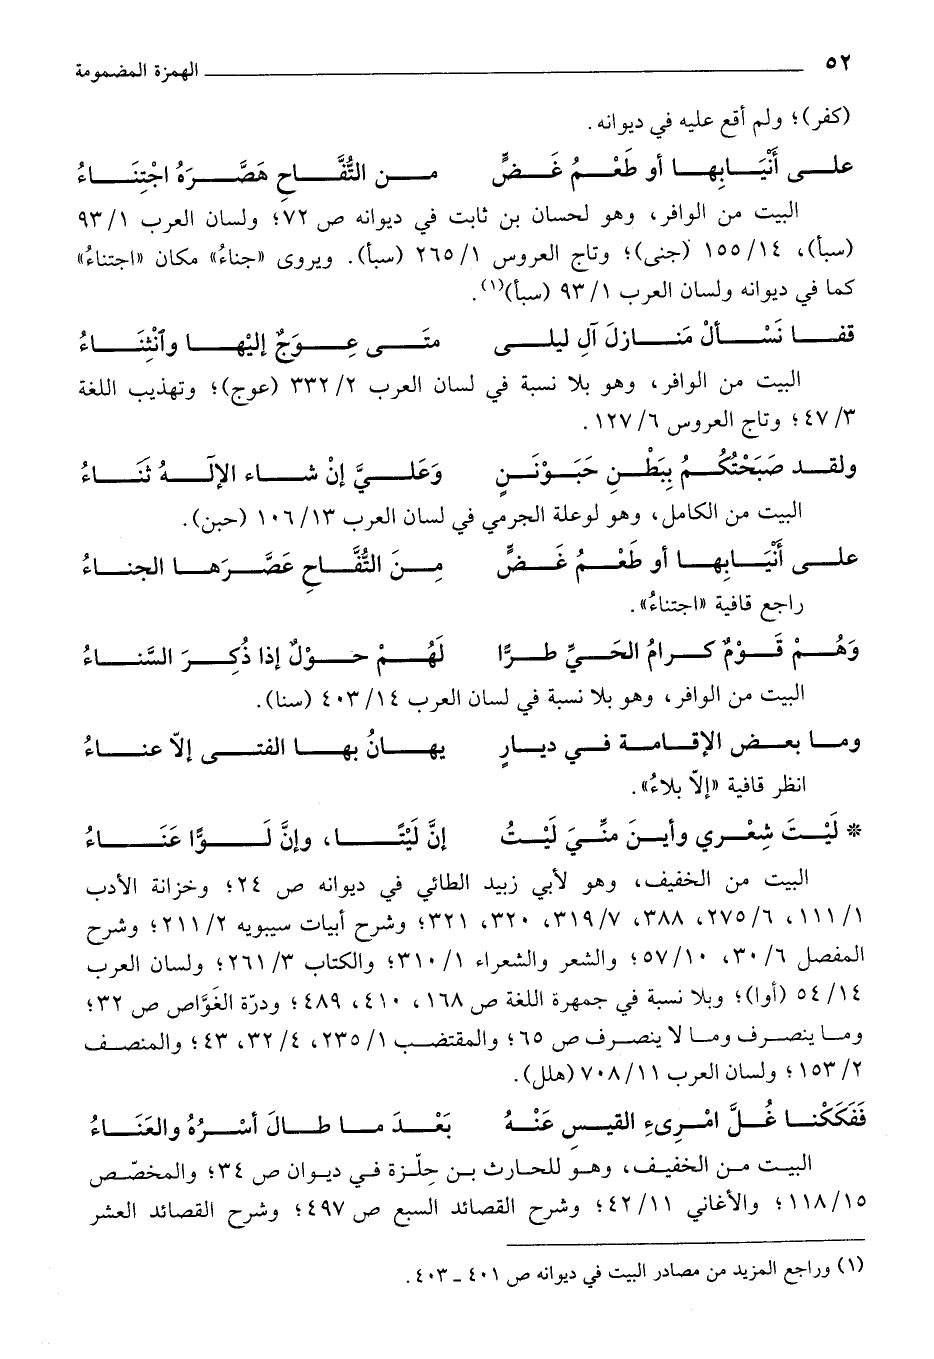 ٥٢ الهمزة المضمومة
(كفر)؛ ولم أقع عليه في ديوانه.
على أَنْيَابِها أو طَعْمُ غَضٍّ من التُّفَّاحِ هَصَّرَهُ اجْتِنَاءُ
البيت من الوافر، وهو لحسان بن ثابت في ديوانه ص ٧٢؛ ولسان العرب ٩٣/١
(سبأ)، ١٥٥/١٤ (جنى)؛ وتاج العروس ٢٦٥/١ (سبأ). ويروى «جناءُ» مكان «اجتناءُ»
كما في ديوانه ولسان العرب ٩٣/١ (سبأ)(١).
قفا نَسْأَلْ مَنازلَ آلِ ليلى متَى عِوَجٌ إليْها وٱنْثِنَاءُ
البيت من الوافر، وهو بلا نسبة في لسان العرب ٣٣٢/٢ (عوج)؛ وتهذيب اللغة
٤٧/٣؛ وتاج العروس ١٢٧/٦.
ولقد صَبَحْتُكُمُ بِبَطْنِ حَبَوْنَنٍ وَعَليَّ إنْ شاء الإلَهُ ثَنَاءُ
البيت من الكامل، وهو لوعلة الجرمي في لسان العرب ١٠٦/١٣ (حبن).
على أَنْيَابِها أو طَعْمُ غَضٍّ مِنَ التُّفَّاحِ عَصَّرَها الجناءُ
راجع قافية «اجتناءُ».
وَهُمْ قَوْمٌ كرامُ الحَيِّ طرًّا لَهُمْ حوْلٌ إذا ذُكِرَ السَّناءُ
البيت من الوافر، وهو بلا نسبة في لسان العرب ٤٠٣/١٤ (سنا).
وما بعض الإقامة في ديارٍ يهانُ بها الفتى إلاّ عناءُ
انظر قافية «إلاّ بلاءُ».
* لَيْتَ شِعْري وأينَ منِّيَ لَيْتُ إنَّ لَيْتًا، وإنَّ لَوًّا عَنَاءُ
البيت من الخفيف، وهو لأبي زبيد الطائي في ديوانه ص ٢٤؛ وخزانة الأدب
١١١/١، ٢٧٥/٦، ٣٨٨، ٣١٩/٧، ٣٢٠، ٣٢١؛ وشرح أبيات سيبويه ٢١١/٢؛ وشرح
المفصل ٣٠/٦، ٥٧/١٠؛ والشعر والشعراء ٣١٠/١؛ والكتاب ٢٦١/٣؛ ولسان العرب
٥٤/١٤ (أوا)؛ وبلا نسبة في جمهرة اللغة ص ١٦٨، ٤١٠، ٤٨٩؛ ودرّة الغَوَّاص ص ٣٢؛
وما ينصرف وما لا ينصرف ص ٦٥؛ والمقتضب ٢٣٥/١، ٣٢/٤، ٤٣؛ والمنصف
١٥٣/٢؛ ولسان العرب ٧٠٨/١١ (هلل).
فَفَكَكْنا غُلَّ امْرِىءِ القيسِ عَنْهُ بَعْدَ ما طالَ أسْرُهُ والعَنَاءُ
البيت من الخفيف، وهو للحارث بن حِلّزة في ديوان ص ٣٤؛ والمخصّص
١١٨/١٥؛ والأغاني ٤٢/١١؛ وشرح القصائد السبع ص ٤٩٧؛ وشرح القصائد العشر
(١) وراجع المزيد من مصادر البيت في ديوانه ص ٤٠١ - ٤٠٣.